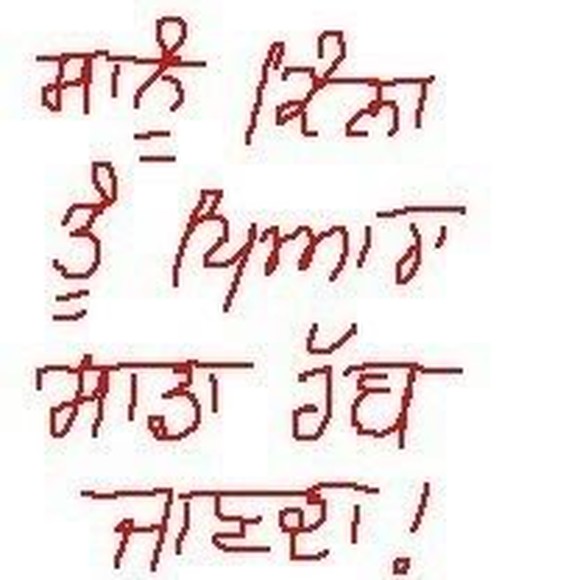 ਸਾਨੂੰ ਕਿੰਨਾ
ਤੂੰ ਪਿਆਰਾ
ਸਾਡਾ ਰੱਬ
ਜਾਣਦਾ!